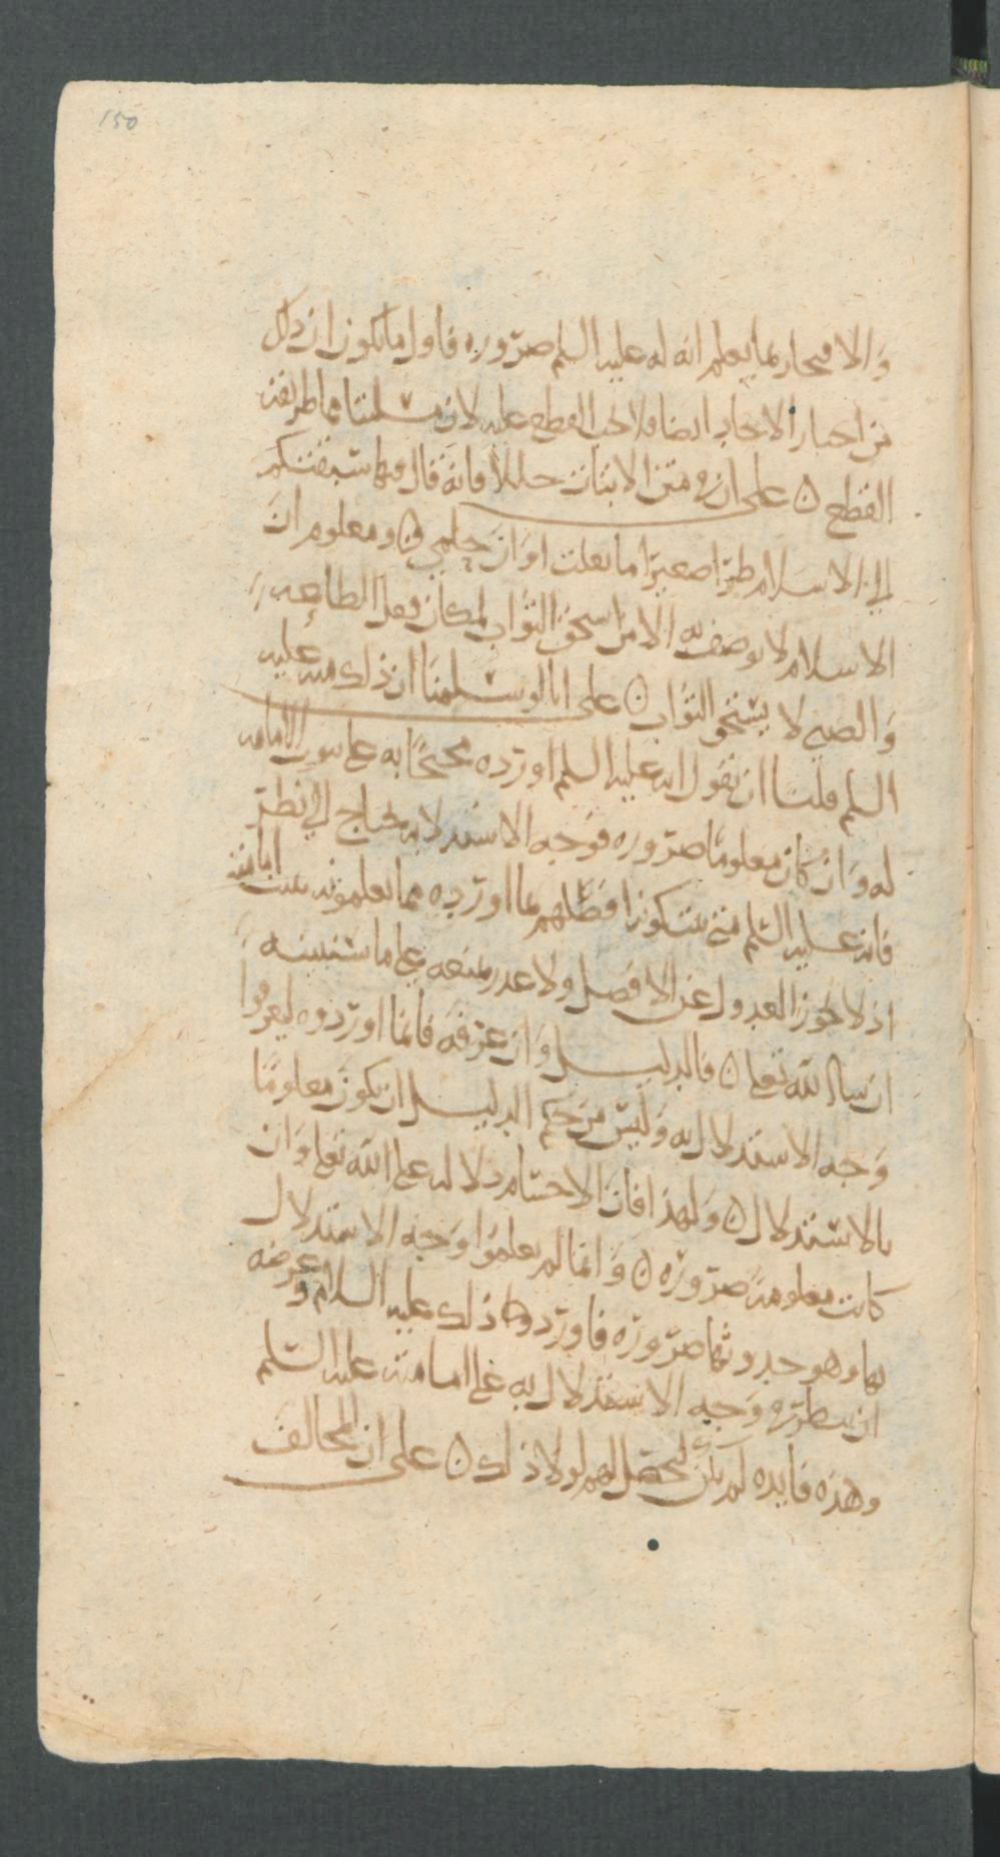 150
والافتخار بما يعلم انه له عليه السلم ضرورة فاول ما يكون ان ذلك
من اخبار الاحاد ايضا فلا يجب القطع عليه لان مسلتنا مما طريقته
القطع ۞ على ان في متن الابيات خللا فانه قال فيها سبقتكم
الى الاسلام طرا صغيرا ما بلغت اوان حلمي ۞ ومعلوم ان
الاسلام لا يوصف به الا من استحق الثواب لمكان فعل الطاعه
والصبي لا يستحق الثواب ۞ على انا لو سلمنا ان ذلك منه عليه
السلم فلنا ان نقول انه عليه السلم اورده محتجا به على ثبوت الامامه
له وان كان معلوما ضرورة فوجه الاستدلال به يحتاج الى نظر
فانه عليه السلم متى يكون افضلهم بما اورده مما يعلمونه ثبتت امامته
اذ لا يجوز العدول عن الافضل ولا عذر يمنعه على ما سنبينه
ان شاء الله تعلى ۞ فالدليل وان عرفه فانما اورده ليعرفوا
وجه الاستدلال به وليس من حكم الدليل ان يكون معلوما
بالاستدلال ۞ ولهذا فان الاجسام دلالة على الله تعلى وان
كانت معلومة ضرورة ۞ وانما لم يعلموا وجه الاستدلال
بها وهو حدوثها ضرورة فاورد ذلك عليه السلام وغرضه
ان ينظر في وجه الاستدلال به على امامته عليه السلم
وهذه فايدة لم تكن لتحصل لهم لولا ذلك ۞ على ان المخالف